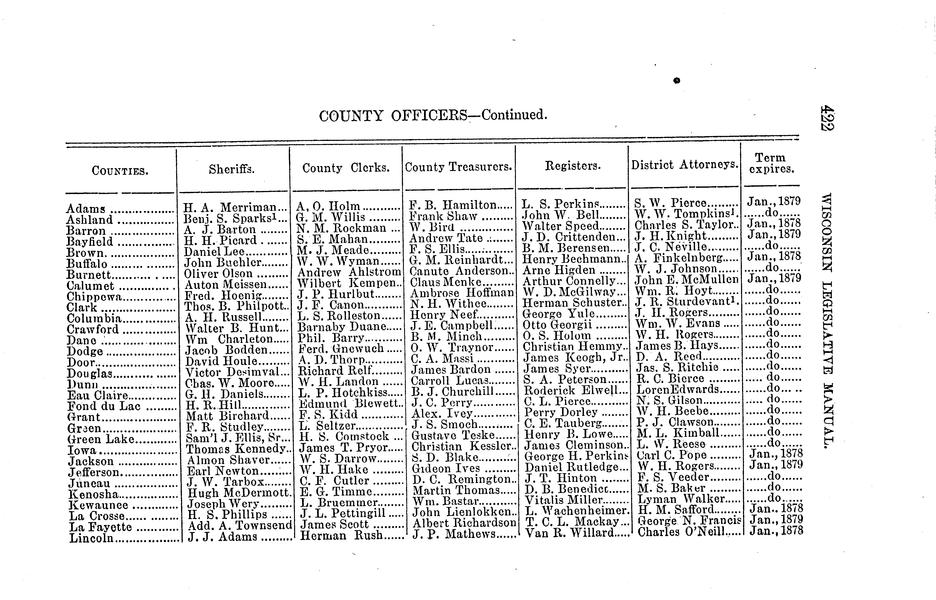 422 WISCONSIN LEGISLATIVE MANUAL.
COUNTY OFFICERS—Continued.
COUNTIES. Sheriffs. County Clerks. County Treasurers. Registers. District Attorneys. Term expires.
Adams H. A. Merriman A. O. Holm F. B. Hamilton L. S. Perkins S. W. Pierce Jan., 1879
Ashland Benj. S. Sparks¹ G. M. Willis Frank Shaw John W. Bell W. W. Tompkins¹ do
Barron A. J. Barton N. M. Rockman W. Bird Walter Speed Charles S. Taylor Jan., 1878
Bayfield H. H. Picard S. E. Mahan Andrew Tate J. D. Crittenden J. H. Knight Jan., 1879
Brown Daniel Lee M. J. Meade F. S. Ellis B. M. Berensen J. C. Neville do
Buffalo John Buehler W. W. Wyman G. M. Reinhardt Henry Bechmann A. Finkelnberg Jan., 1878
Burnett Oliver Olson Andrew Ahlstrom Canute Anderson Arne Higden W. J. Johnson do
Calumet Auton Meissen Wilbert Kempen Claus Menke Arthur Connelly John E. McMullen Jan., 1879
Chippewa Fred. Hoenig J. P. Hurlbut Ambrose Hoffman W. D. McGilway Wm. R. Hoyt do
Clark Thos. B. Philpott J. F. Canon N. H. Withee Herman Schuster J. R. Sturdevant¹ do
Columbia A. H. Russell L. S. Rolleston Henry Neef George Yule J. H. Rogers do
Crawford Walter B. Hunt Barnaby Duane J. E. Campbell Otto Georgii Wm. W. Evans do
Dane Wm Charleton Phil. Barry B. M. Minch O. S. Holom W. H. Rogers do
Dodge Jacob Bodden Ferd. Gnewuch O. W. Traynor Christian Hemmy James B. Hays do
Door David Houle A. D. Thorp C. A. Massi James Keogh, Jr. D. A. Reed do
Douglas Victor Desimval Richard Relf James Bardon James Syer Jas. S. Ritchie do
Dunn Chas. W. Moore W. H. Landon Carroll Lucas S. A. Peterson R. C. Bierce do
Eau Claire G. H. Daniels L. P. Hotchkiss B. J. Churchill Roderick Elwell Loren Edwards do
Fond du Lac H. R. Hill Edmund Blewett J. C. Perry C. L. Pierce N. S. Gilson do
Grant Matt Birchard F. S. Kidd Alex. Ivey Perry Dorley W. H. Beebe do
Green F. R. Studley L. Seltzer J. S. Smoch C. E. Tauberg P. J. Clawson do
Green Lake Sam'l J. Ellis, Sr. H. S. Comstock Gustave Teske Henry B. Lowe M. L. Kimball do
Iowa Thomas Kennedy James T. Pryor Christian Kessler James Cleminson L. W. Reese do
Jackson Almon Shaver W. S. Darrow S. D. Blake George H. Perkins Carl C. Pope Jan., 1878
Jefferson Earl Newton W. H. Hake Gideon Ives Daniel Rutledge W. H. Rogers Jan., 1879
Juneau J. W. Tarbox C. F. Cutler D. C. Remington J. T. Hinton F. S. Veeder do
Kenosha Hugh McDermott E. G. Timme Martin Thomas D. B. Benedict M. S. Baker do
Kewaunee Joseph Wery L. Bruemmer Wm. Bastar Vitalis Miller Lyman Walker do
La Crosse H. S. Phillips J. L. Pettingill John Lienlokken L. Wachenheimer H. M. Safford Jan., 1878
La Fayette Add. A. Townsend James Scott Albert Richardson T. C. L. Mackay George N. Francis Jan., 1879
Lincoln J. J. Adams Herman Rush J. P. Mathews Van R. Willard Charles O'Neill Jan., 1878